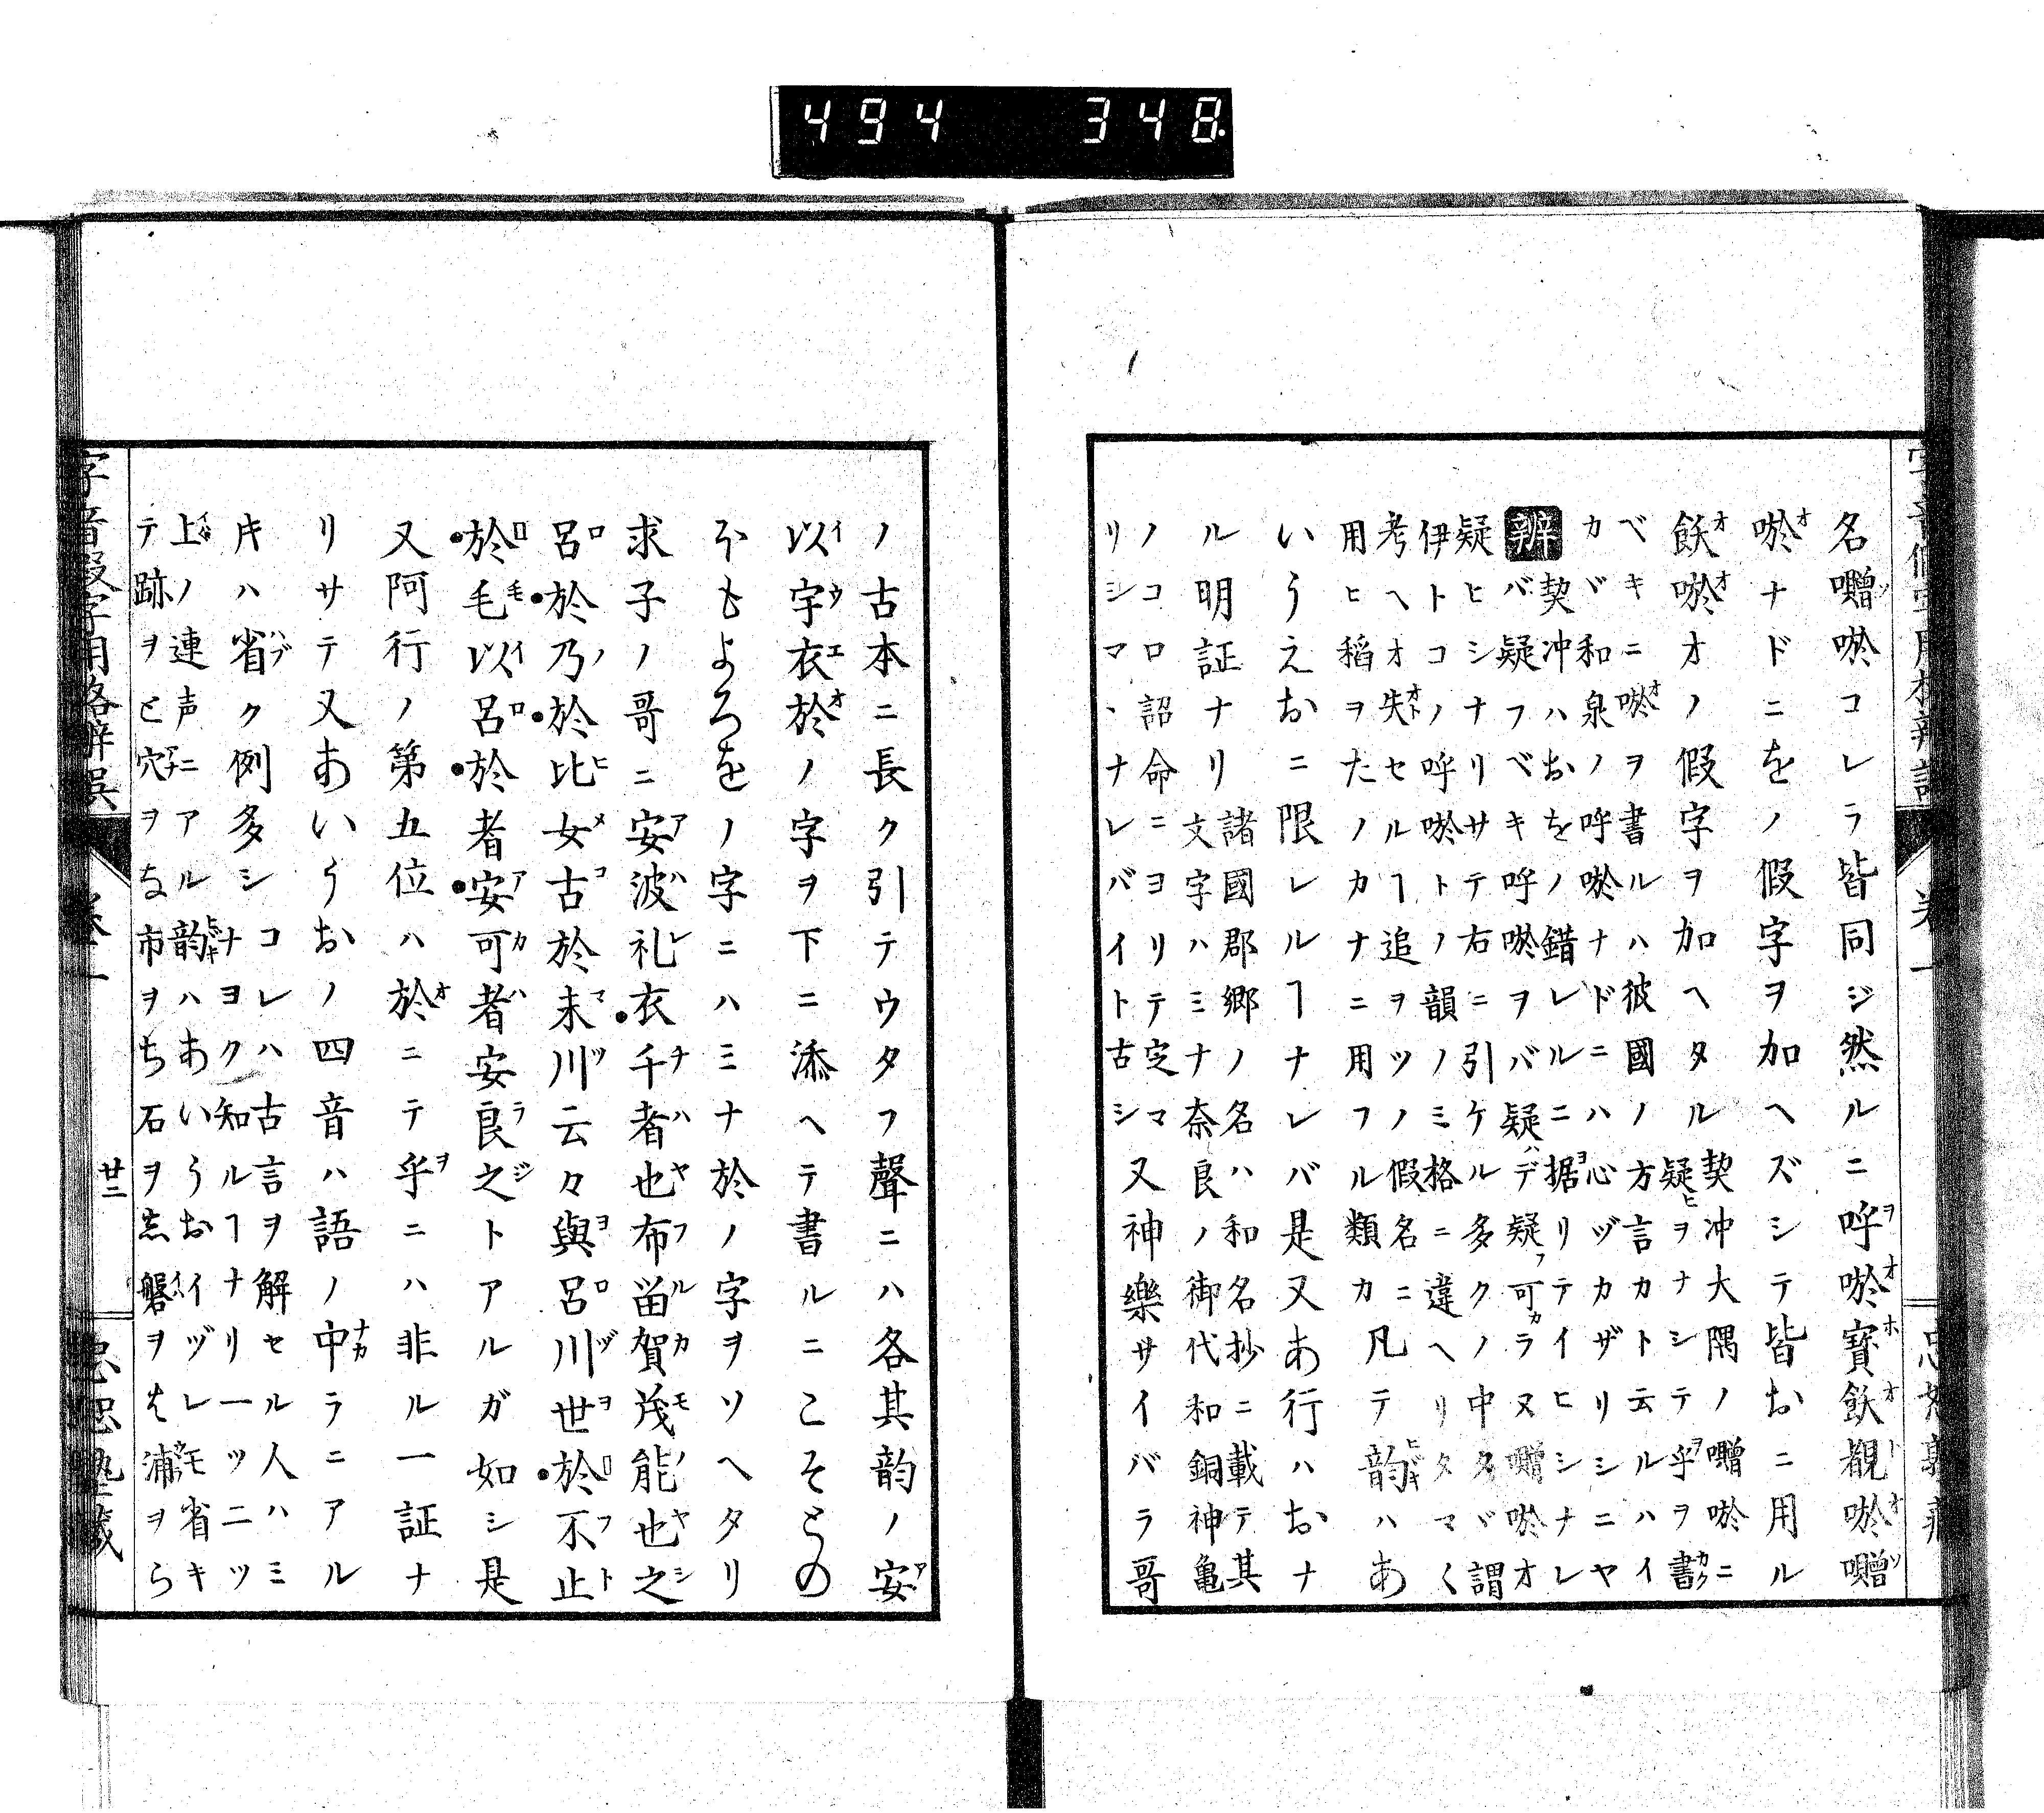 494 348
名囎唹コレラ皆同ジ然ルニ呼唹寶飫覩唹囎
唹ナドニをノ假字ヲ加ヘズシテ皆おニ用ル
飫唹オノ假字ヲ加ヘタル
契沖大隅ノ囎唹ニ
疑ヒヲナシテ乎ヲ書
ベキニ唹ヲ書ルハ彼國ノ方言カト云ルハイ
カヾ和泉ノ呼唹ナドニハ心ヅカザリシニヤ
契沖ハおをノ錯レルニ据リテイヒシナレ
辨バ疑フベキ呼唹ヲバ疑ハデ疑フ可カラヌ囎唹オ
疑ヒシナリサテ右ニ引ケル多クノ中タヾ謂
伊トコノ呼唹トノ韻ノミ格ニ違ヘリタマ〱
考ヘオ失セルヿ追ヲツノ假名ニ
用ヒ稻ヲたノカナニ用フル類カ凡テ韵ハあ
いうえおニ限レルヿナレバ是又あ行ハおナ
ル明証ナリ
諸國郡郷ノ名ハ和名抄ニ載テ其
文字ハミナ奈良ノ御代和銅神亀
ノコロ詔命ニヨリテ定マ
リシマヽナレバイト古シ
又神樂サイバラ哥
ノ古本ニ長ク引テウタフ聲ニハ各其韵ノ安
以宇衣於ノ字ヲ下ニ添ヘテ書ルニこそとの
ほもよろをノ字ニハミナ於ノ字ヲソヘタリ
求子ノ哥ニ安波礼衣千者也布畄賀茂能也之
呂於乃於比女古於末川云々與呂川世於不止
於毛以呂於者安可者安良之トアルガ如シ是
又阿行ノ第五位ハ於ニテ乎ニハ非ル一証ナ
リサテ又あいうおノ四音ハ語ノ中ラニアル
片ハ省ク例多シ
コレハ古言ヲ解セル人ハミ
ナヨク知ルヿナリ一ッ二ッ
上ノ連声ニアル韵ハあいうおイヅレモ省キ
テ跡ヲと穴ヲな市ヲち石ヲし磐ヲは浦ヲら
字音假字用格辨誤 卷一 廿二 忠恕塾藏